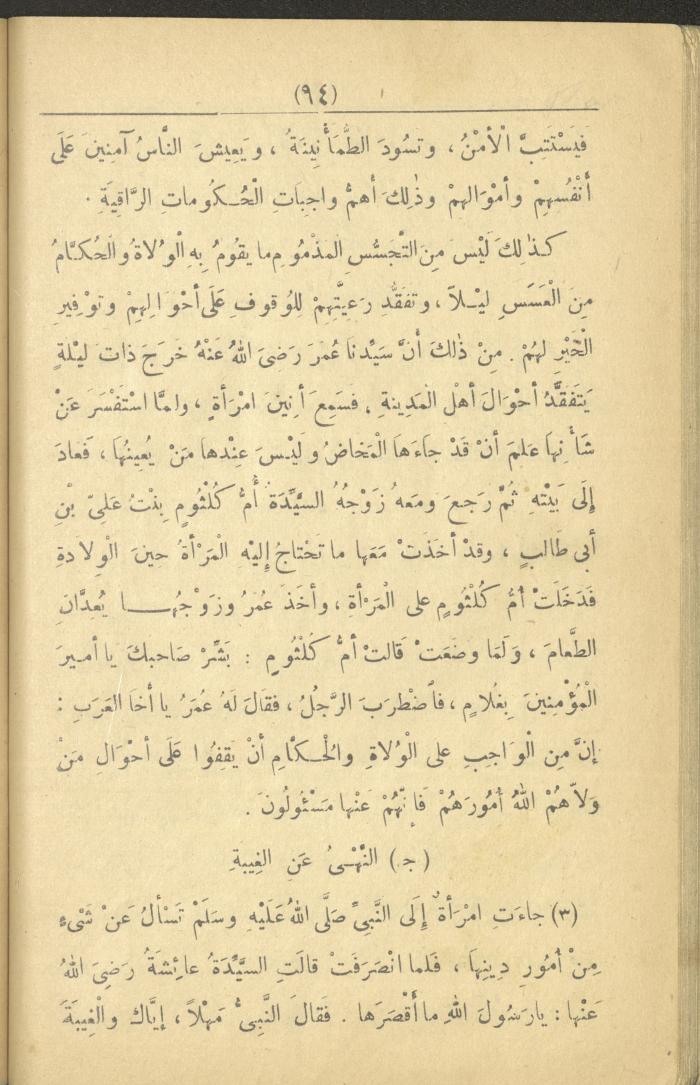 (٩٤)
فَيَسْتَتِبَّ الْأَمْنُ ، وتَسُودَ الطُّمَأْنِينَةُ ، وَيَعِيشَ النَّاسُ آمِنِينَ عَلَى
أَنْفُسِهِمْ وأَمْوَالِهِمْ وذٰلِكَ أَهَمُّ واجِبَاتِ الْحُكُومَاتِ الرَّاقِيَةِ .
كَذٰلِكَ لَيْسَ مِنَ التَّجَسُّسِ الْمَذْمُومِ ما يَقُومُ بِهِ الْوُلَاةُ وَالْحُكَّامُ
مِنَ الْعَسَسِ لَيْلًا ، وتَفَقُّدِ رَعِيَّتِهِمْ لِلْوُقُوفِ عَلَى أَحْوَالِهِمْ وتَوْفِيرِ
الْخَيْرِ لَهُمْ . مِنْ ذٰلِكَ أَنَّ سَيِّدَنَا عُمَرَ رَضِىَ اللهُ عَنْهُ خَرَجَ ذاتَ لَيْلَةٍ
يَتَفَقَّدُ أَحْوَالَ أَهْلِ الْمَدِينَةِ ، فَسَمِعَ أَنِينَ امْرَأَةٍ ، ولمَّا اسْتَفْسَرَ عَنْ
شَأْنِهَا عَلِمَ أَنْ قَدْ جاءَهَا الْمَخَاضُ وَلَيْسَ عِنْدَها مَنْ يُعِينُهَا ، فَعادَ
إِلَى بَيْتِهِ ثُمَّ رَجَعَ ومَعَهُ زَوْجُهُ السَّيِّدَةُ أُمُّ كُلْثُومٍ بِنْتُ عَلِىِّ بْنِ
أبى طَالِبٍ ، وقَدْ أَخَذَتْ مَعَهَا ما تَحْتَاجُ إِلَيْهِ الْمَرْأَةُ حِينَ الْوِلَادَةِ
فَدَخَلَتْ أُمُّ كُلْثُومٍ على الْمَرْأَةِ ، وأَخَذَ عُمَرُ وزَوْجُهَا يُعِدَّانِ
الطَّعَامَ ، وَلَمَّا وضَعَتْ قالَتْ أُمُّ كُلْثُومٍ : بَشِّرْ صَاحِبَكَ يا أَمِيرَ
الْمُؤْمِنِينَ بِغُلَامٍ ، فَاضْطَرَبَ الرَّجُلُ ، فقَالَ لَهُ عُمَرُ يا أَخَا العَرَبِ :
إِنَّ مِنَ الْوَاجِبِ على الْوُلَاةِ والْحُكَّامِ أَنْ يَقِفُوا عَلَى أَحْوَالِ مَنْ
وَلَّاهُمُ اللهُ أُمُورَهُمْ فَإِنَّهُمْ عَنْهَا مَسْئُولُونَ .
(ج) النَّهْىُ عَنِ الْغِيبَةِ
(٣) جاءَتِ امْرَأَةٌ إِلَى النَّبِىِّ صَلَّى اللهُ عَلَيْهِ وسَلَّمَ تَسْأَلُ عَنْ شَىْءٍ
مِنْ أُمُورِ دِينِهَا ، فَلَما انْصَرَفَتْ قالَتِ السَّيِّدَةُ عَائِشَةُ رَضِىَ اللهُ
عَنْهَا : يارَسُولَ اللهِ ما أَقْصَرَها . فَقالَ النَّبِىُّ مَهْلًا ، إِيَّاكِ والْغِيبَةَ